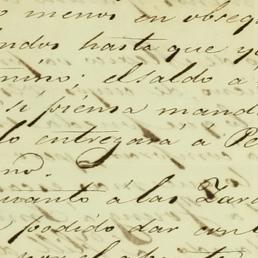 menos en obseq
hasta que y
mino; el saldo á
si piensa mand
lo entregará á Pe
no.
uanto á las Zara
podido dar cum